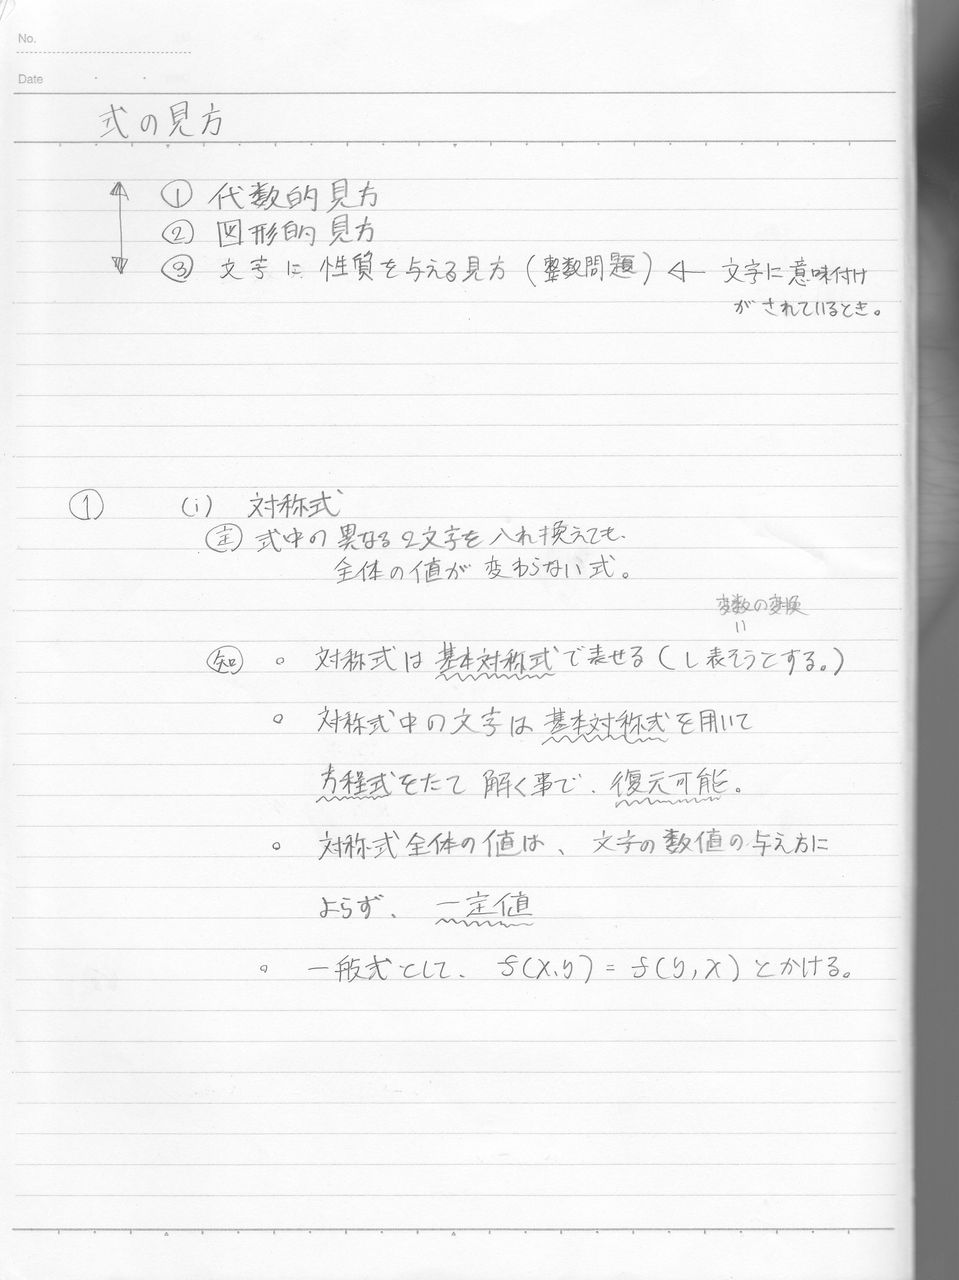 No.
Date
式の見方
① 代数的見方
② 図形的見方
③ 文字に性質を与える見方(整数問題) ← 文字に意味付け
がされているとき。
① (i) 対称式
定 式中の異なる2文字を入れ換えても、
全体の値が変わらない式。
変数の変換
知 ○ 対称式は基本対称式で表せる(し表そうとする。)
○ 対称式中の文字は基本対称式を用いて
方程式をたて解く事で、復元可能。
○ 対称式全体の値は、文字の数値の与え方に
よらず、一定値
○ 一般式として、f(x,y)=f(y,x)とかける。